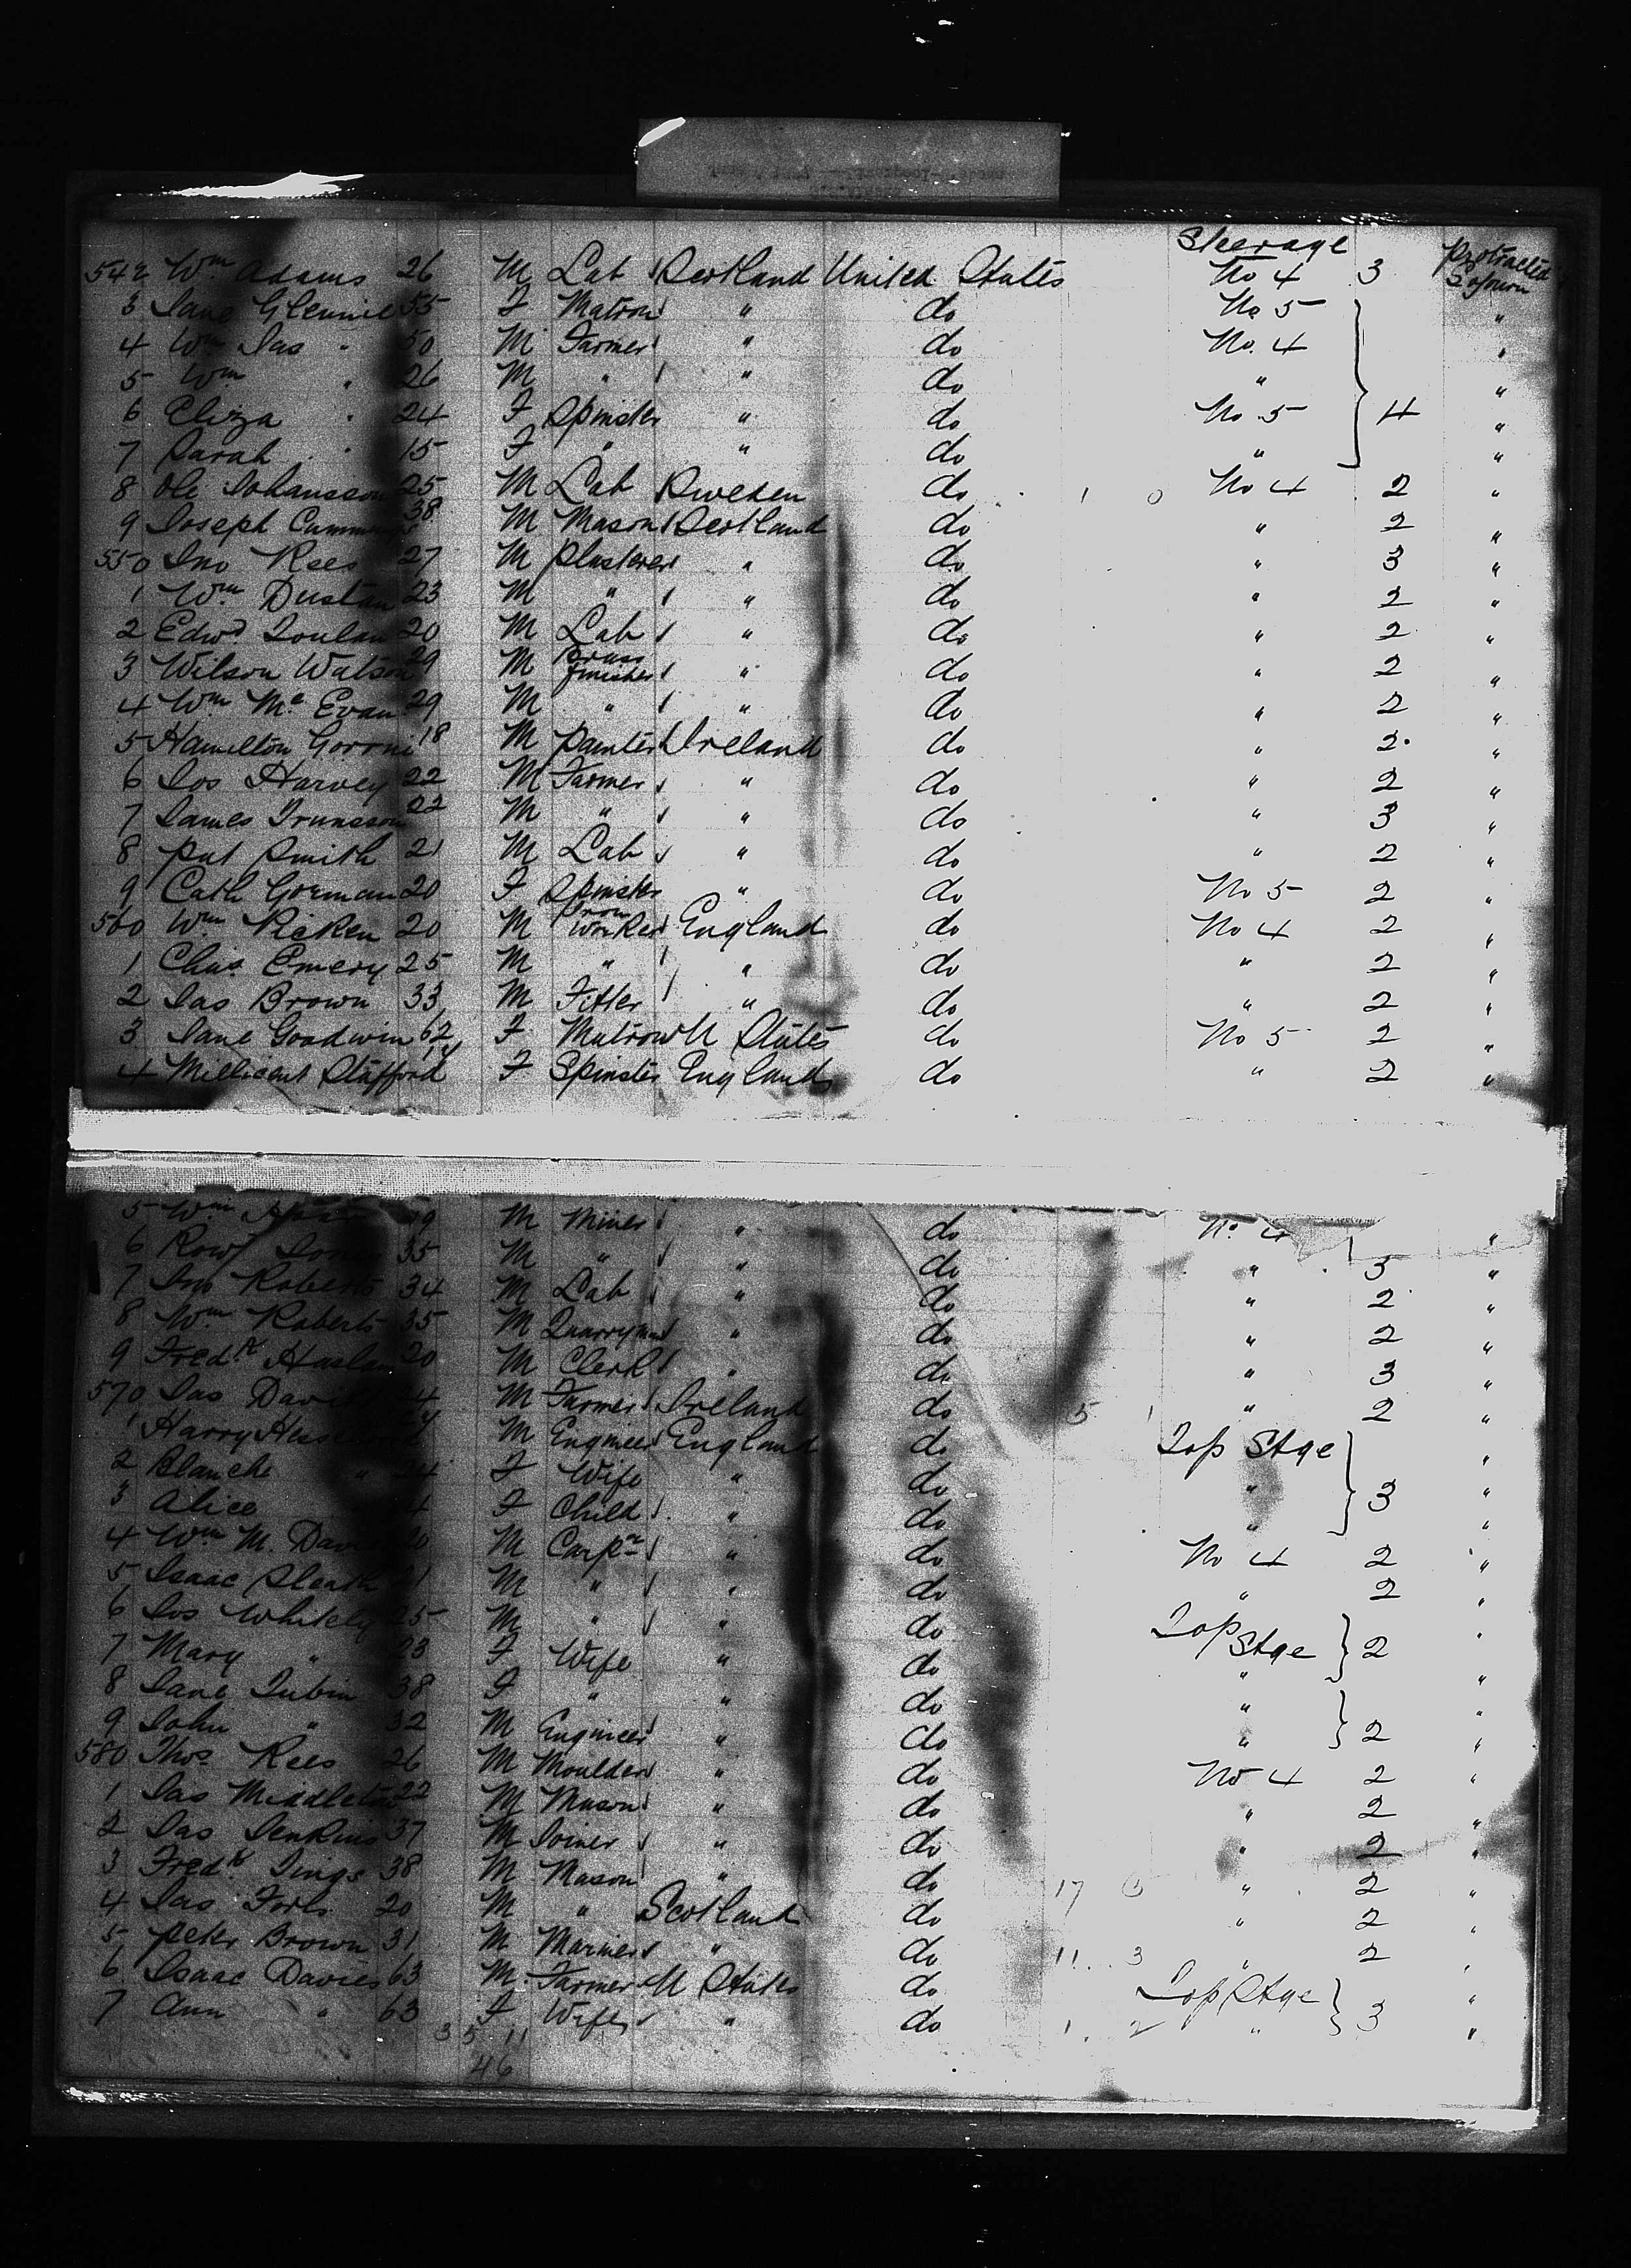 Steerage
542 Wm Adams 26 M Lab Scotland United States No 4 3 Protracted Sojourn
3 Jane Glennie 55 F Matron " do No 5 "
4 Wm Jas " 50 M Farmer " do No. 4 "
5 Wm " 26 M " " do " "
6 Eliza " 24 F Spinster " do No 5 4 "
7 Sarah " 15 F " " do " "
8 Ole Johansson 25 M Lab Sweden do 1 0 No 4 2 "
9 Joseph 38 M Mason Scotland do " 2 "
550 Jno Rees 27 M Plasterer " do " 3 "
1 Wm Dustan 23 M " " do " 2 "
2 Edwd 20 M Lab " do " 2 "
3 Wilson Watson 29 M Brass finisher " do " 2 "
4 Wm Mc Evan 29 M " " do " 2 "
5 Hamilton 18 M Painter Ireland do " 2 "
6 Jos Harvey 22 M Farmer " do " 2 "
7 James 22 M " " do " 3 "
8 Pat Smith 21 M Lab " do " 2 "
9 Cath Gorman 20 F Spinster " do No 5 2 "
560 Wm 20 M Iron Worker England do No 4 2 "
1 Chas Emery 25 M " " do " 2 "
2 Jas Brown 33 M Fitter " do " 2 "
3 Jane Goodwin 62 F Matron U States do No 5 2 "
4 Millicent Stafford F Spinster England do " 2 "
5 Wm M Miner " do No 4 "
6 35 M " " do " 3 "
7 Jno Roberts 34 M Lab " do " 2 "
8 Wm Roberts 35 M Quarryman " do " 2 "
9 Fredk Haslam 20 M Clerk " do " 3 "
570 Jas M Farmer Ireland do 5 1 " 2 "
1 Harry M Engineer England do Top Stge "
2 Blanche " 24 F Wife " do " 3 "
3 Alice 4 F Child " do " "
4 Wm M. M Carpr " do No 4 2 "
5 Isaac M " " do " 2 "
6 Jos Whitely 25 M " " do Top Stge "
7 Mary " 23 F Wife " do " 2 "
8 Jane Tubin 38 F " " do " "
9 John " 32 M Engineer " do " 2 "
580 Thos Rees 26 M Moulder " do No 4 2 "
1 Jas Middleton 22 M Mason " do " 2 "
2 Jas Jenkins 37 M Joiner " do " 2 "
3 Fredk 38 M Mason " do 17 " 2 "
4 Jas 20 M " Scotland do " 2 "
5 Peter Brown 31 M Mariner " do 11 3 " 2 "
6 Isaac Davies 63 M Farmer U States do Top Stge "
7 Ann " 63 F Wife " do 1 2 " 3 "
35 11
46